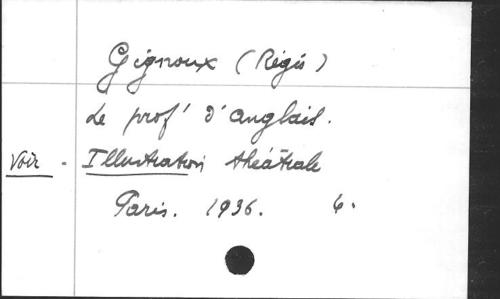 Gignoux (Régis)
Le prof' d'anglais.
Voir - Illustration théâtrale
Paris. 1936. 4.